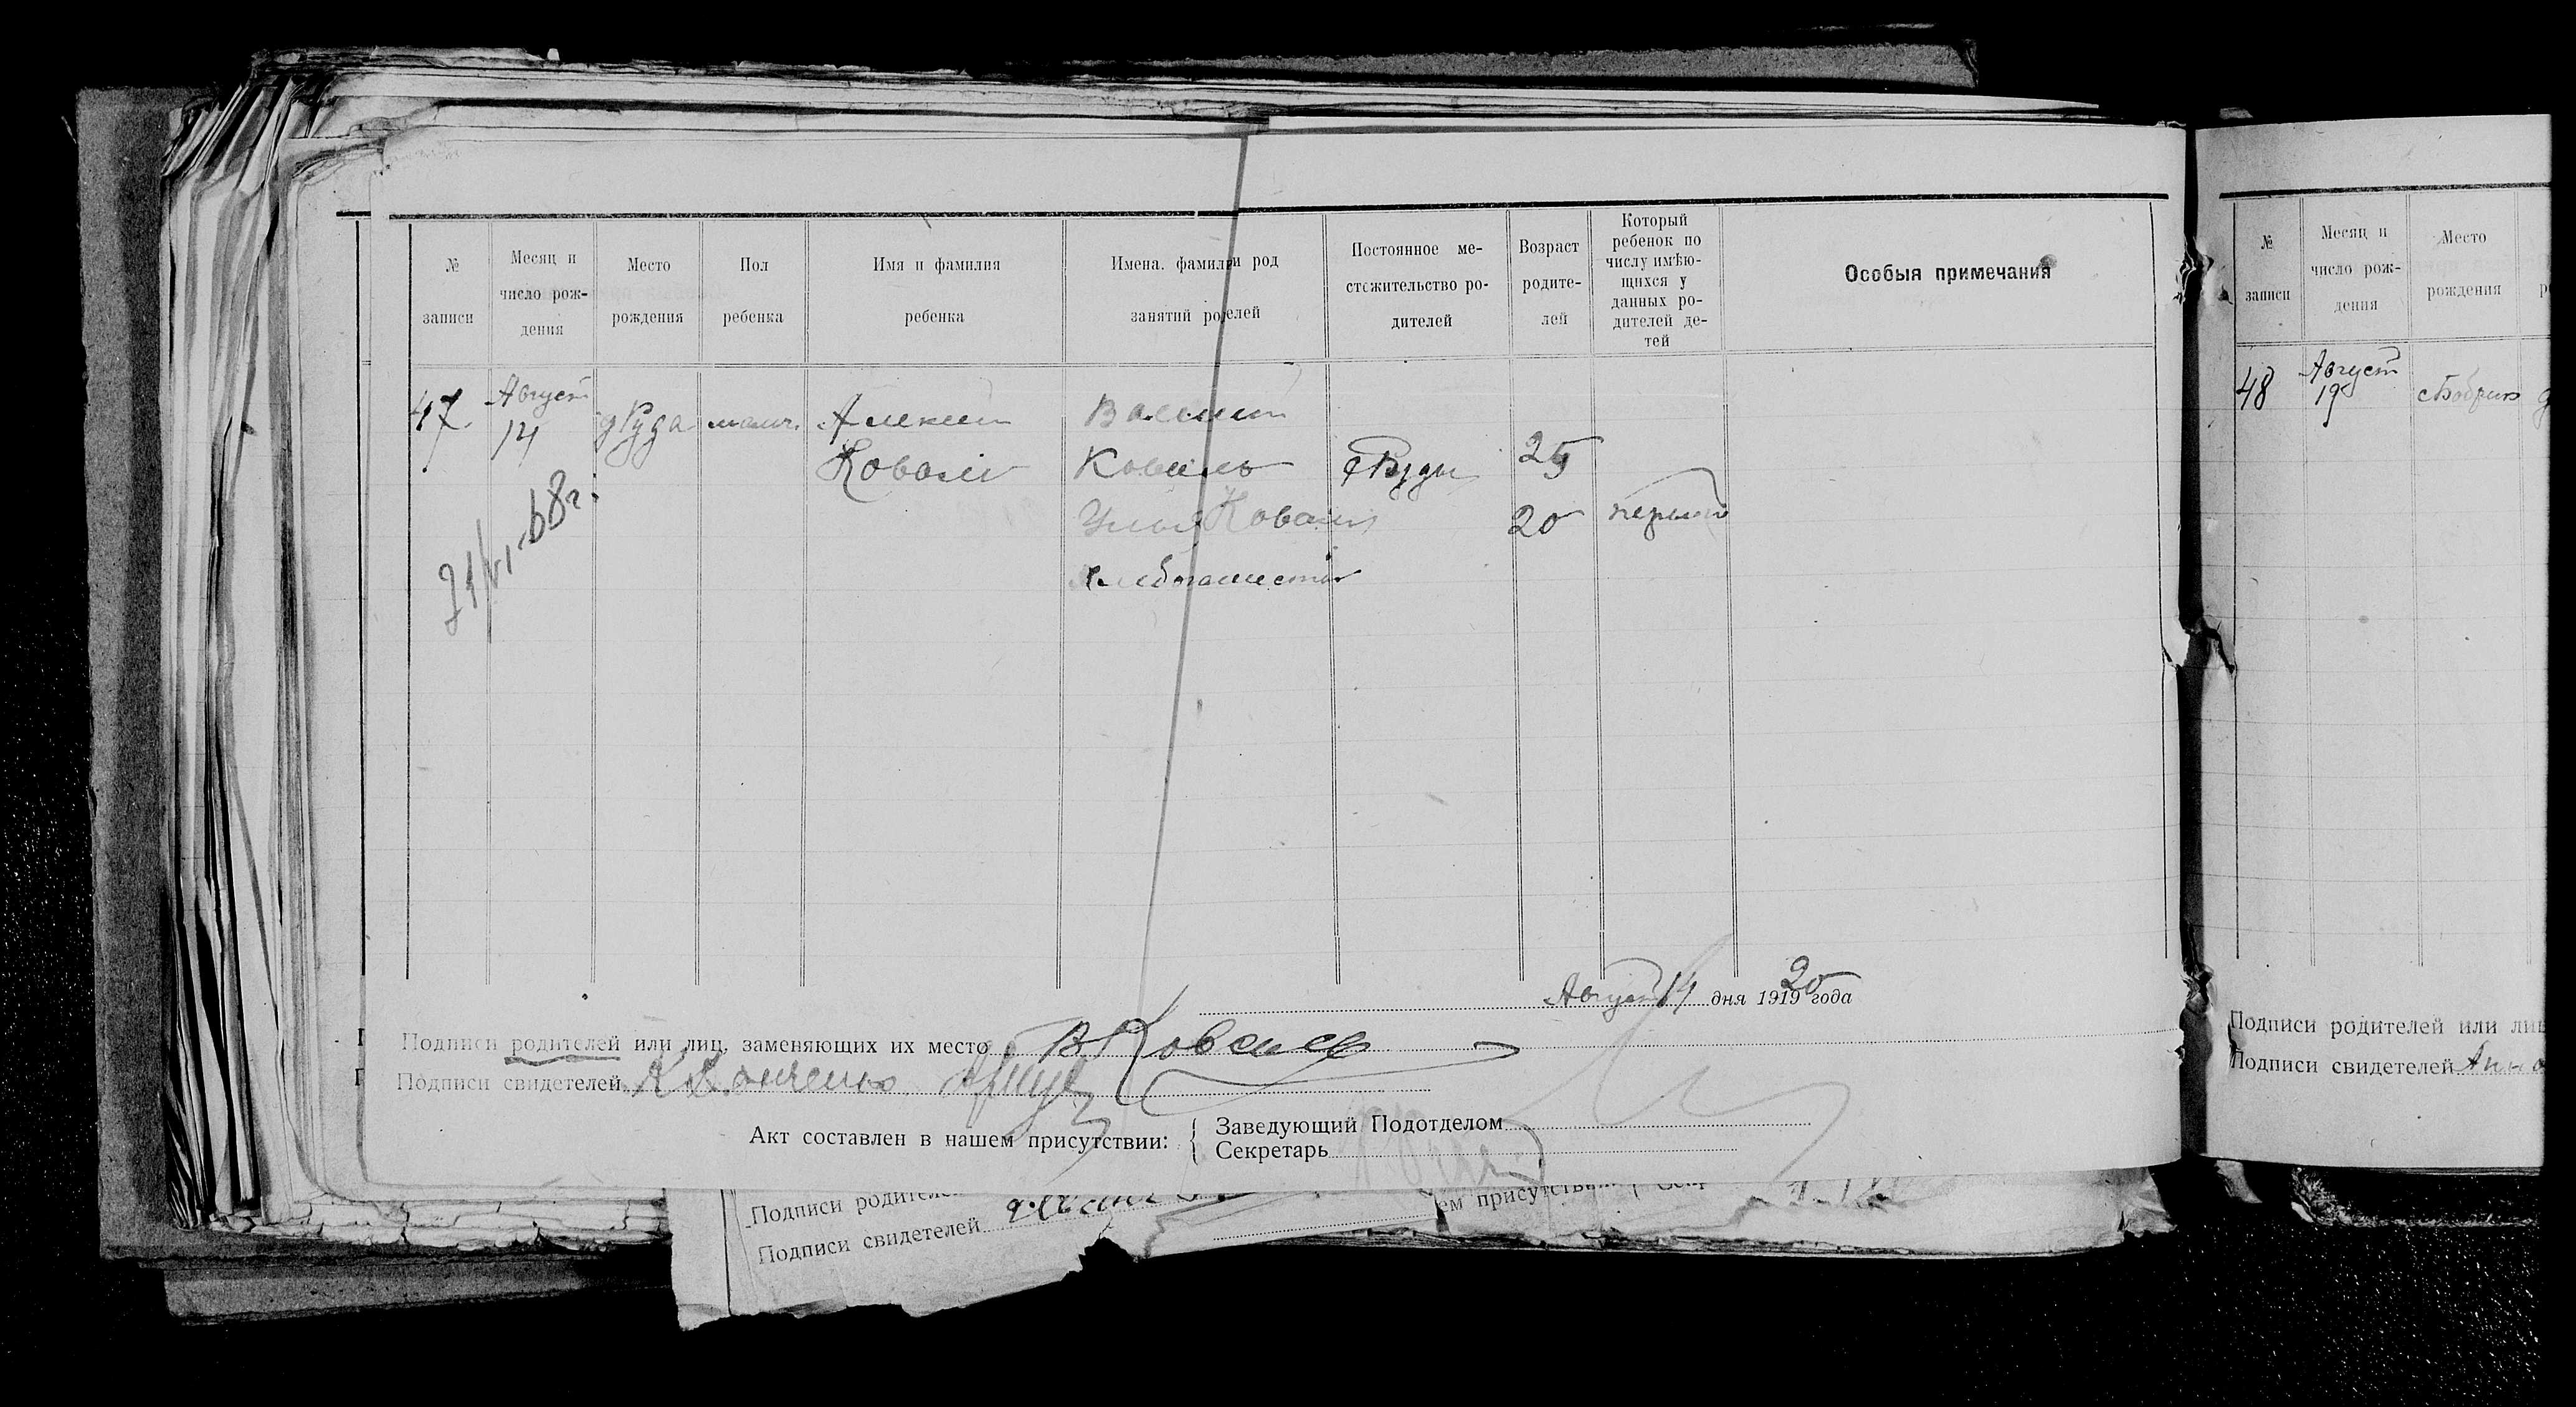 № записи
Месяц и число рож- дения
Место рождения
Пол ребенка
Имя и фамилия ребенка
Имена. фамилии и род занятий родителей
Постоянное ме- стожительство ро- дителей
Возраст родите- лей
Который ребенок по числу имѣю- щихся у данных ро- дителей де- тей
Особыя примечания
47
Август
14
д Руда
мальч.
Алексей
Коваль
Василий
Коваль
д Руды
25
Коваль
20
первый
Хлебопашество
21/VI-68г.
Август 14 дня 1919 20 года
Подписи родителей или лиц, заменяющих их место В Коваль
Подписи свидетелей
Акт составлен в нашем присутствии:
Заведующий Подотделом
Секретарь
Подписи родителей
Подписи свидетелей
ем присутствии:
№ записи
Месяц и число рож- дения
Место рождения
48
Август
19
с Бобрик
Подписи родителей или лиц
Подписи свидетелей Анна